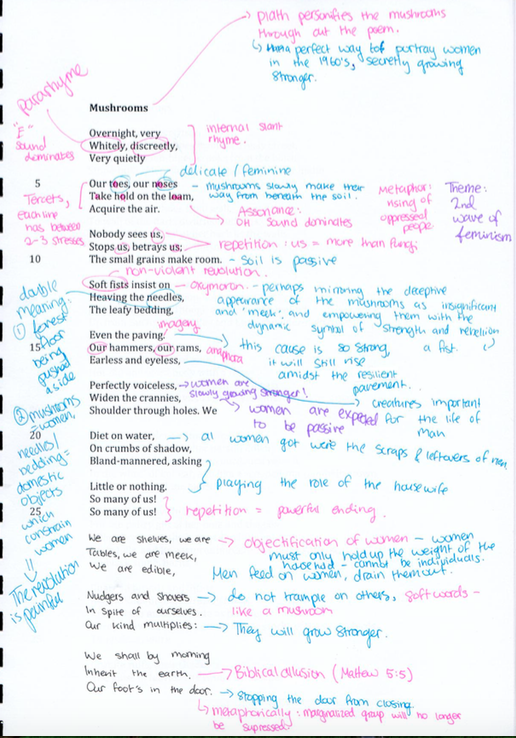 Plath personifies the mushrooms
through out the poem.
↳ perfect way to portray women
in the 1960's, secretly growing
stronger.
Pararhyme
Mushrooms
"E"
sound
dominates
Overnight, very
Whitely, discreetly,
Very quietly
internal slant
rhyme.
delicate / feminine
5 Our toes, our noses
Take hold on the loam,
Acquire the air.
- mushrooms slowly make their
way from beneath the soil.
Tercets,
each line
has between
2-3 stresses
Assonance:
OH sound dominates
Metaphor:
rising of
oppressed
people
Theme:
2nd
wave of
feminism
Nobody sees us,
Stops us, betrays us;
10 The small grains make room.
repetition: us = more than fungi
- Soil is passive
non-violent revolution.
Soft fists insist on
Heaving the needles,
The leafy bedding,
oxymoron. - perhaps mirroring the deceptive
appearance of the mushrooms as insignificant
and 'meek', and empowering them with the
dynamic symbol of strength and rebellion
a fist.
double
meaning:
① forest
floor
being
pushed
aside
imagery
Even the paving.
15 Our hammers, our rams,
Earless and eyeless,
anaphora
this cause is so strong,
it will still rise
amidst the resilient
pavement.
② mushrooms
= women,
needles/
bedding =
domestic
objects
which
constrain
women
=
The revolution
is painful
Perfectly voiceless,
Widen the crannies,
Shoulder through holes. We
→ women are
slowly growing stronger!
creatures important
for the life of
man
women are expected
to be passive
20 Diet on water,
On crumbs of shadow,
Bland-mannered, asking
→ all women got were the scraps & leftovers of men
Little or nothing.
So many of us!
25 So many of us!
playing the role of the housewife
repetition = powerful ending.
We are shelves, we are
Tables, we are meek,
We are edible,
→ objectification of women - women
must only hold up the weight of the
household - cannot be individuals.
Men feed on women, drain them out.
Nudgers and shovers
In spite of ourselves.
Our kind multiplies:
→ do not trample on others, soft words -
like a mushroom
→ They will grow stronger.
We shall by morning
Inherit the earth.
Our foot's in the door.
→ Biblical allusion (Mattew 5:5)
→ stopping the door from closing.
↳ metaphorically: marginalized group will no longer
be supressed